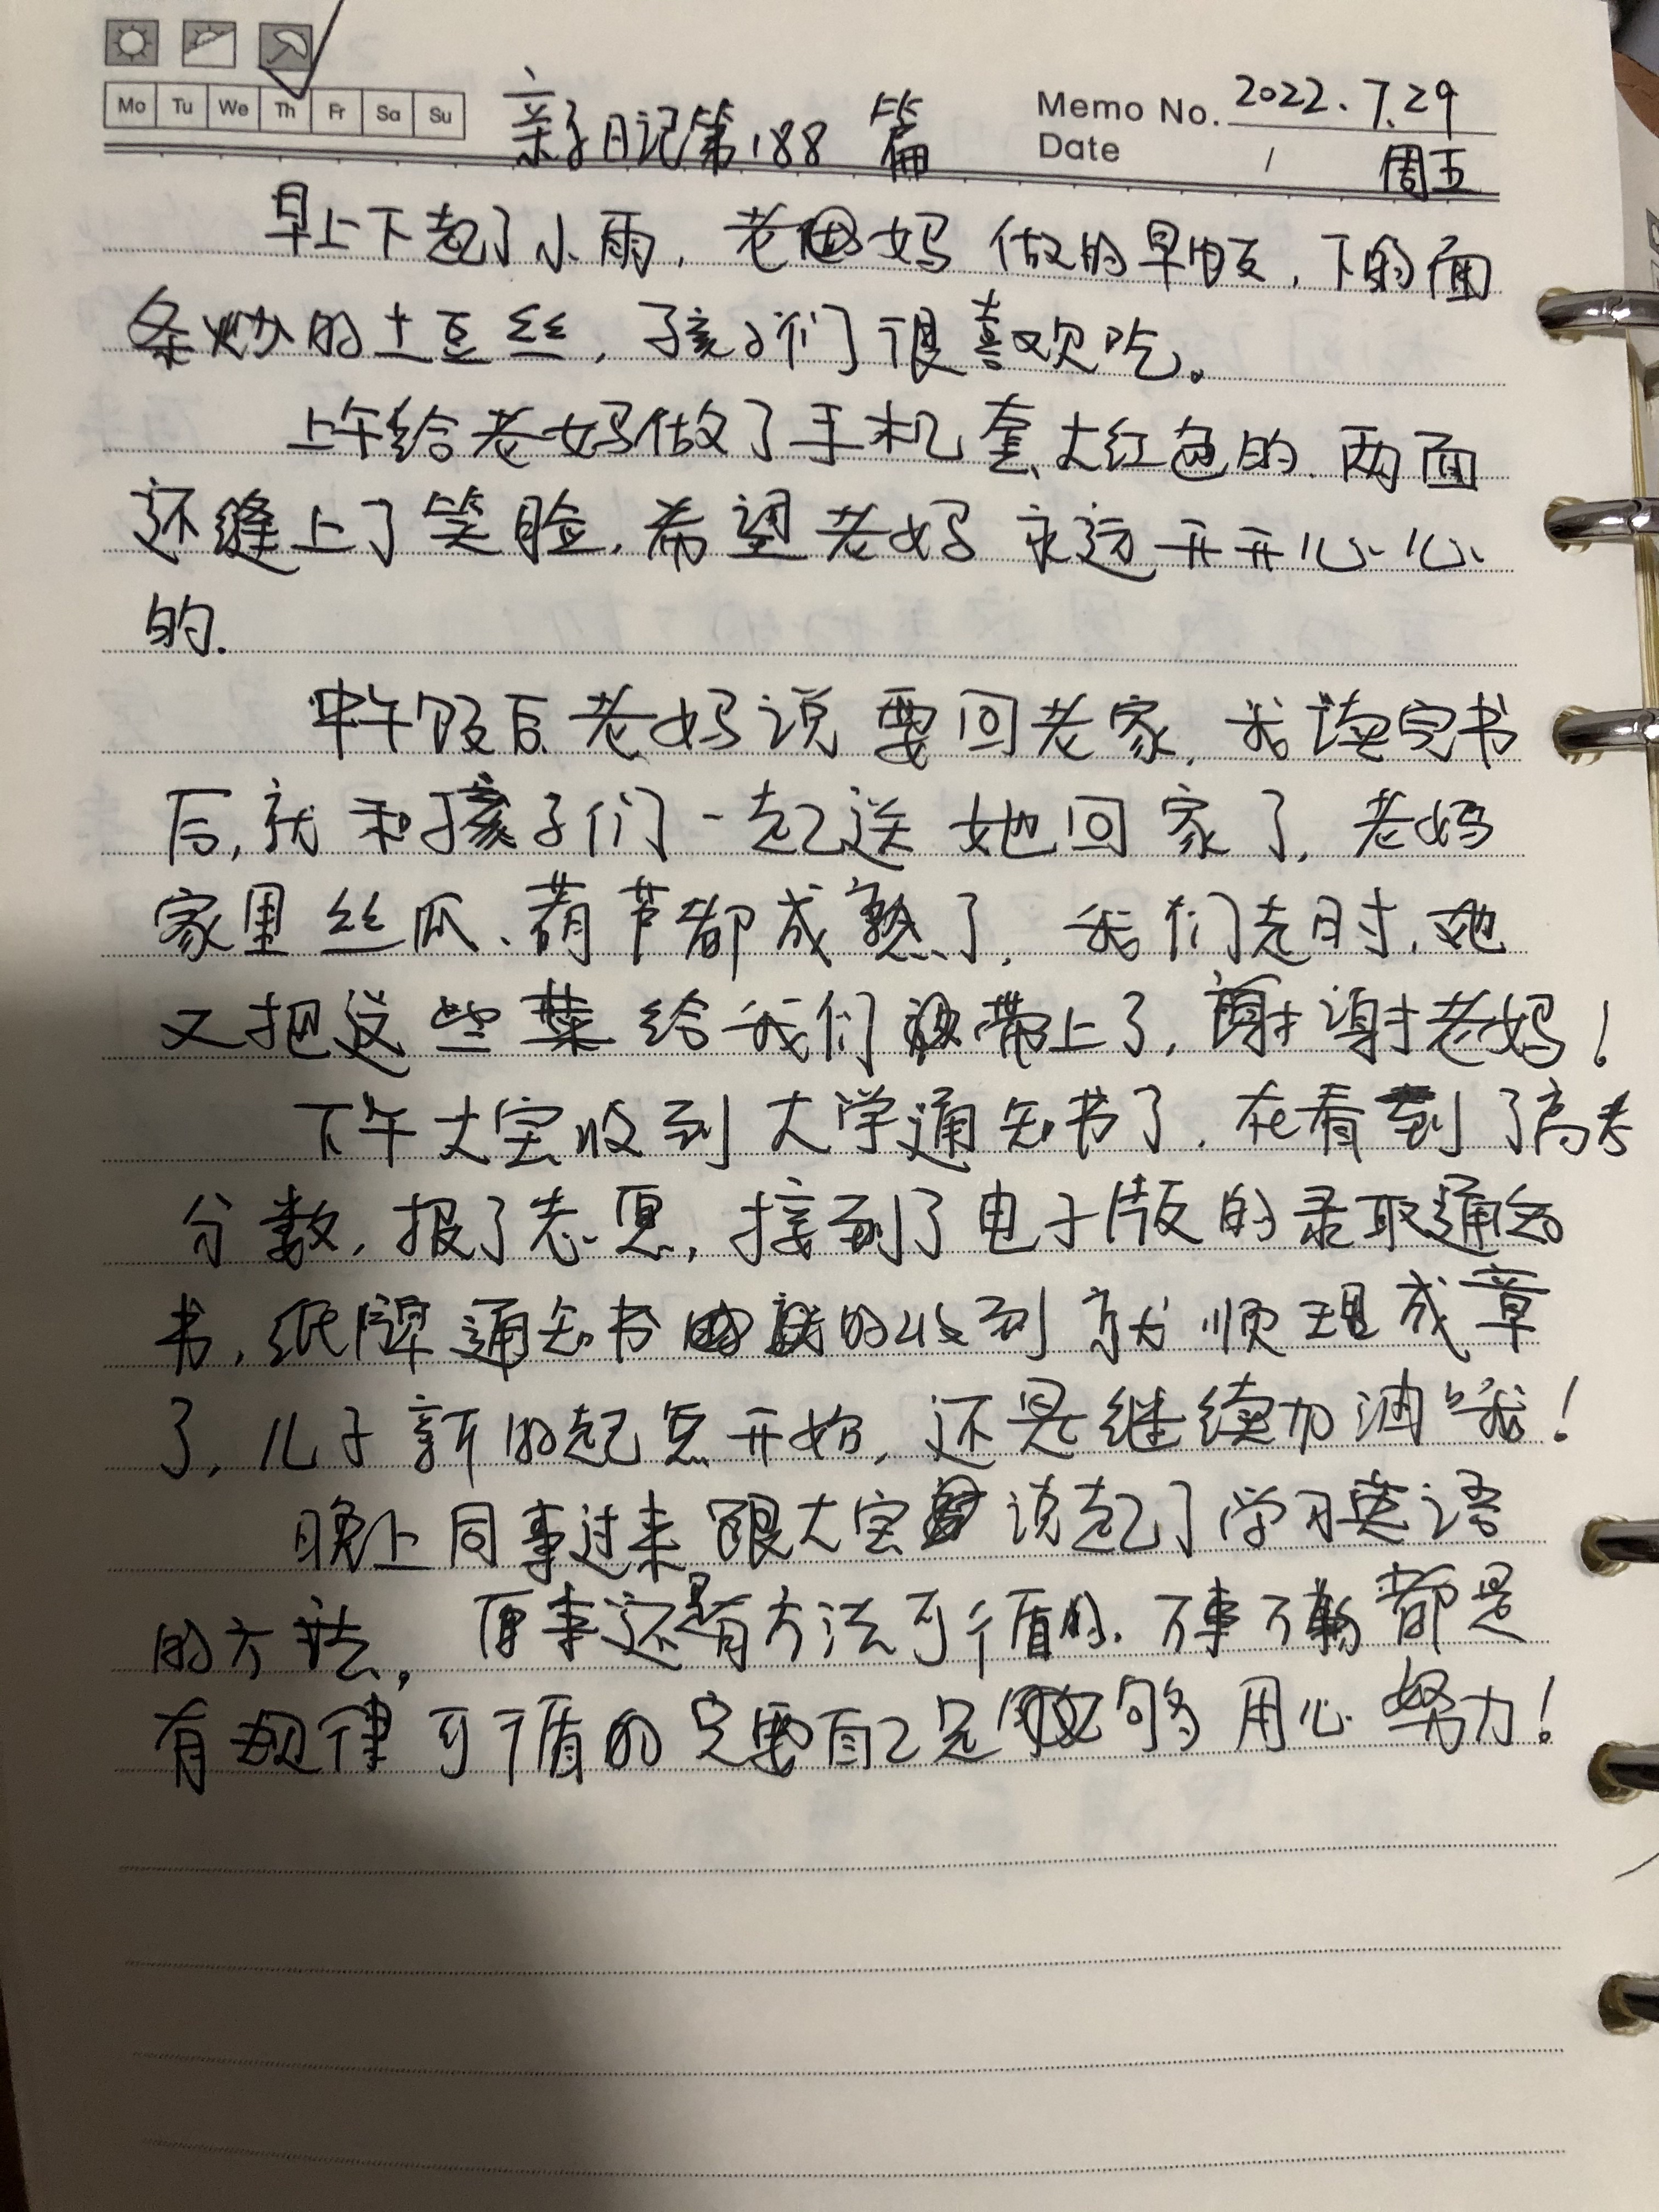 Mo Tu We Th Fr Sa Su
亲子日记第188篇
Memo No. 2022.7.29
Date / 周五
早上下起了小雨,老妈做的早饭,下的面
条炒的土豆丝,孩子们很喜欢吃。
上午给老妈做了手机套,大红色的.两面
还缝上了笑脸,希望老妈永远开开心心
的.
中午饭后老妈说要回老家,我读完书
后,就和孩子们一起送她回家了,老妈
家里丝瓜、葫芦都成熟了,我们走时,她
又把这些菜给我们带上了,谢谢老妈!
下午大宝收到大学通知书了.在看到了高考
分数,报了志愿,接到了电子版的录取通知
书,纸牌通知书的收到就顺理成章
了,儿子新的起点开始,还是继续加油哦!
晚上同事过来跟大宝说起了学习英语
的方法,百事还是有方法可循的.万事万物都是
有规律可循的只要自己足够用心努力!